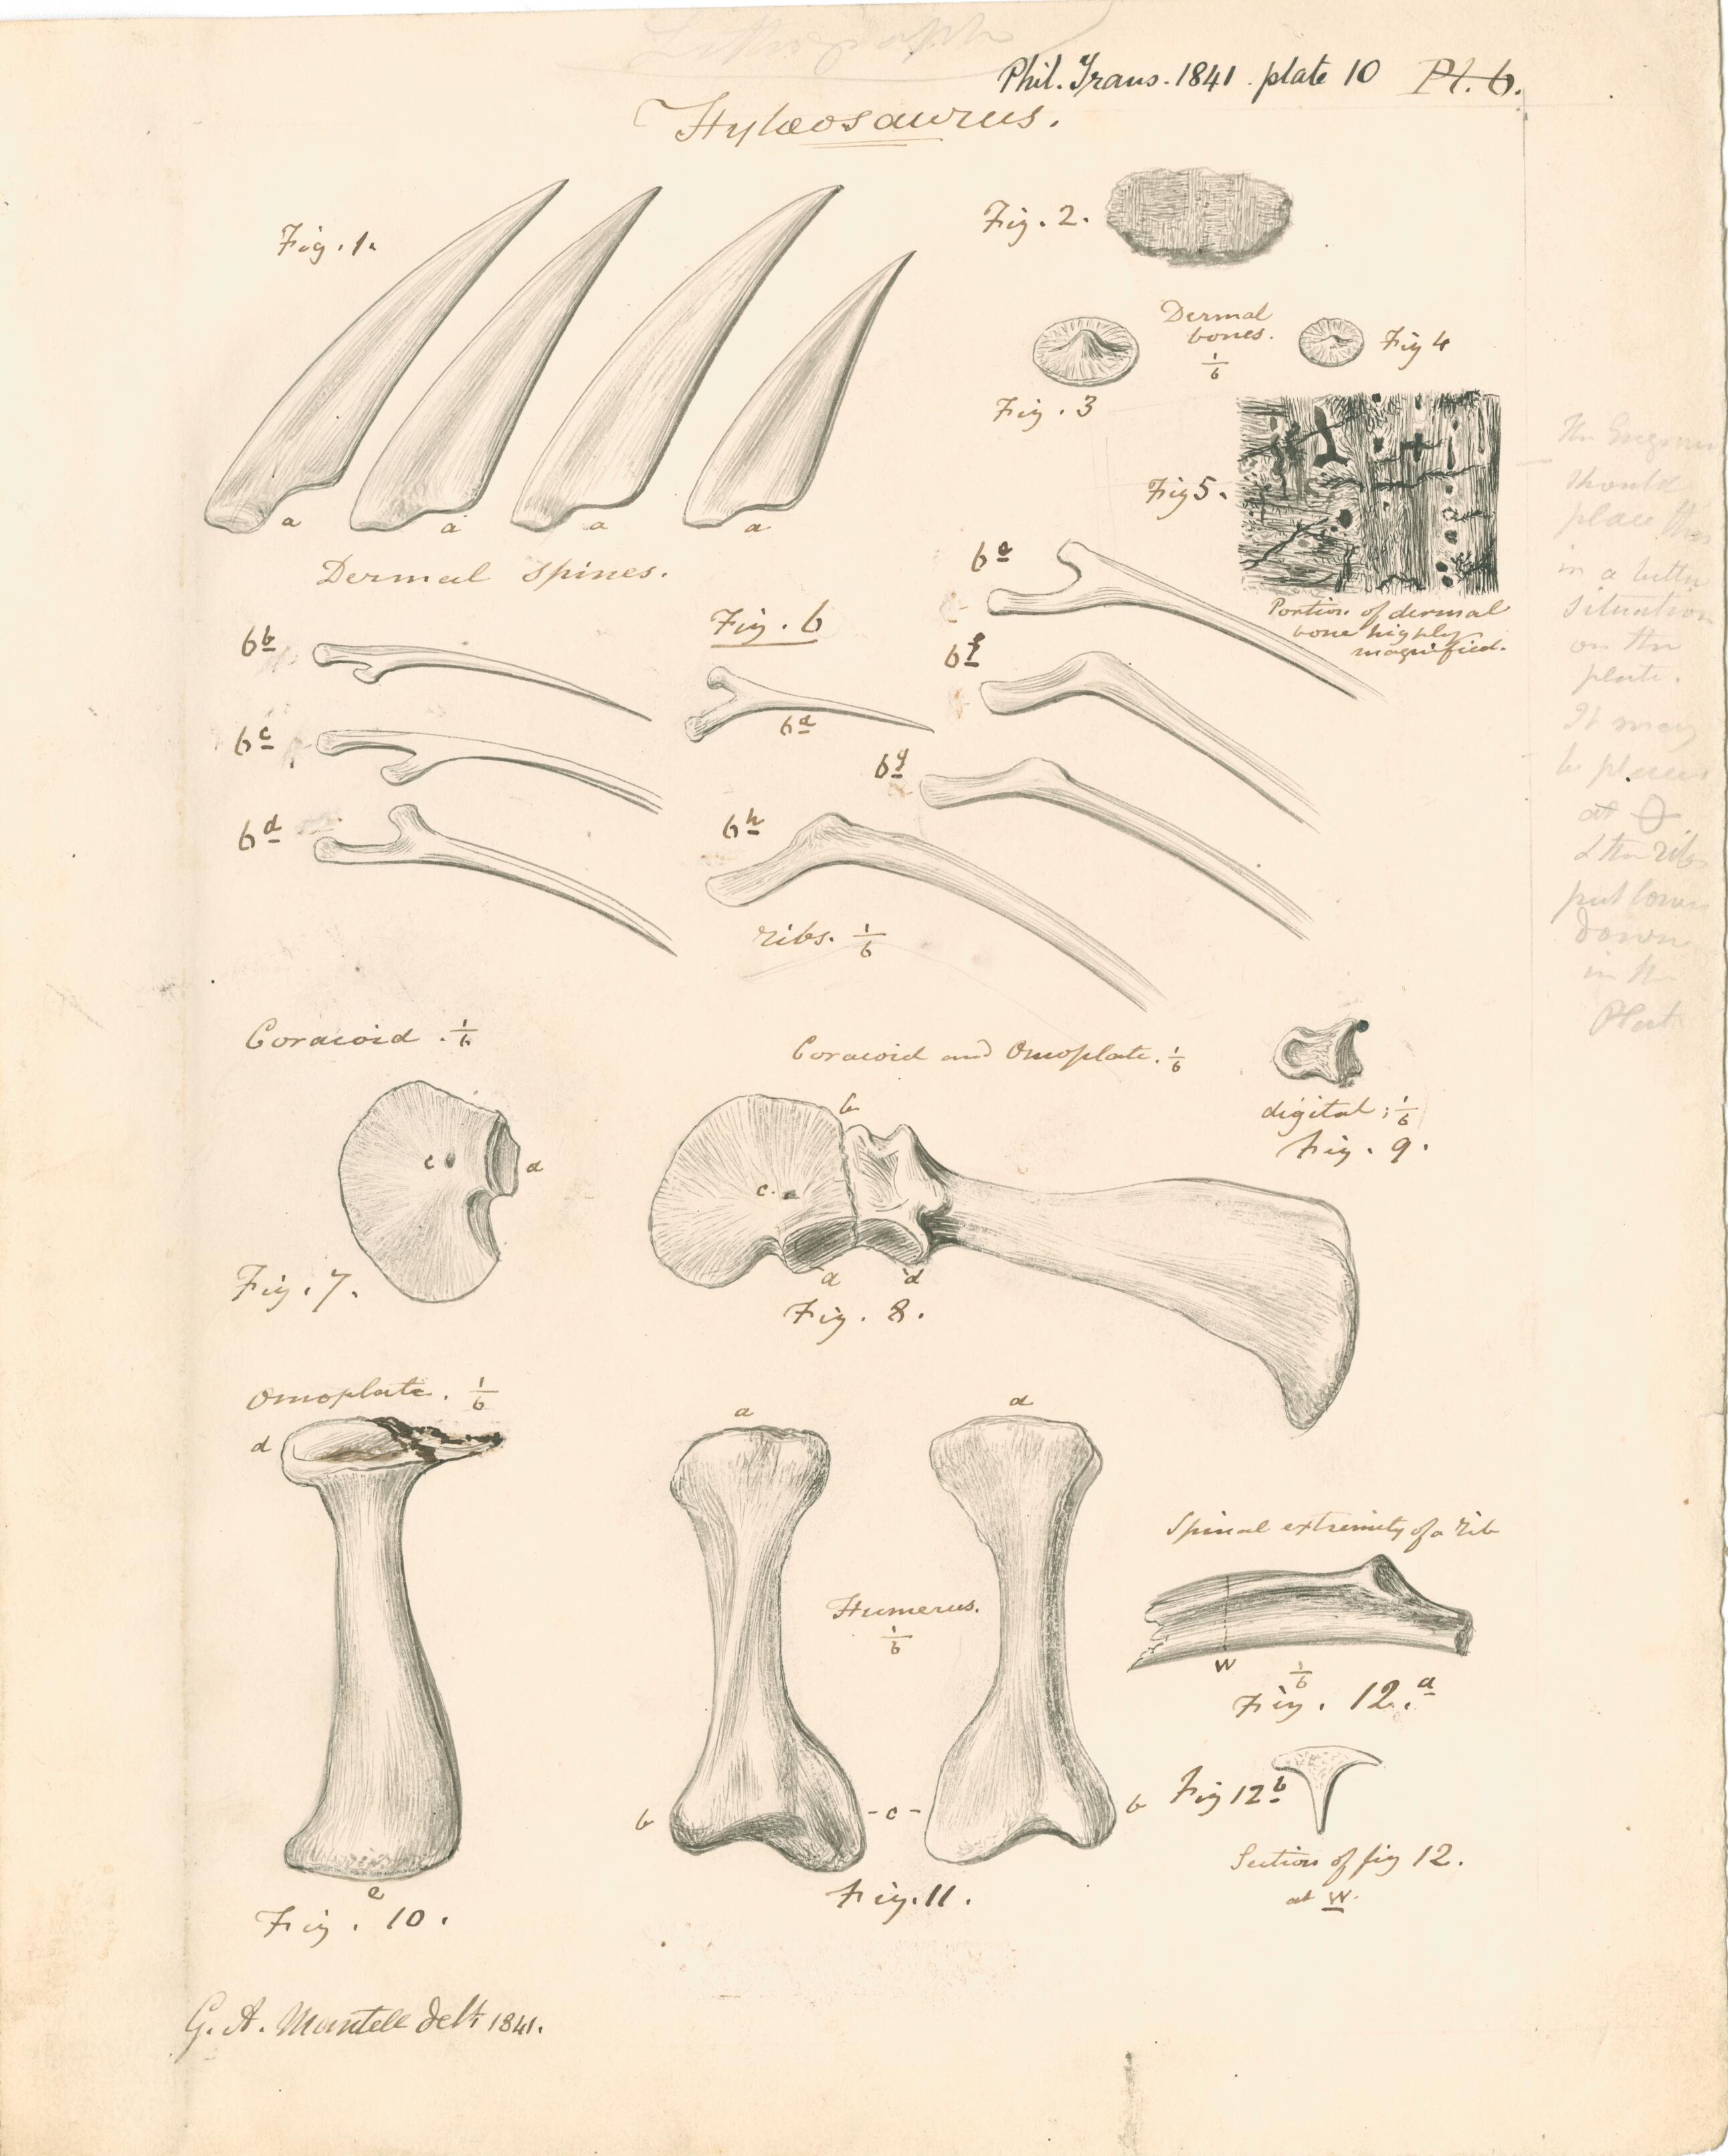 Lithograph
Phil. Trans. 1841. plate 10 Pl. 6.
Hylæosaurus.
Fig. 1.
a a a a
Dermal Spines.
Fig. 2.
Dermal
bones.
1/6
Fig. 3
Fig 4
Fig 5.
Portion of dermal
bone highly
magnified.
Fig. 6
6b
6c
6d
6a
6e
6f
6g
6h
ribs. 1/6
should
place this
in a better
situation
on the
plate.
It may
be placed
at
& the ribs
put lower
down
in the
Plate
Coracoid. 1/6
c d
Fig. 7.
Coracoid and Omoplate. 1/6
b
c.
d d
Fig. 8.
digital; 1/6
Fig. 9.
Omoplate. 1/6
d
e
Fig. 10.
a a
Humerus.
1/6
b -c- b
Fig. 11.
Spinal extremity of a rib
w
1/6
Fig. 12.a
Fig 12b
Section of fig 12.
at w.
G. A. Mantell delt. 1841.